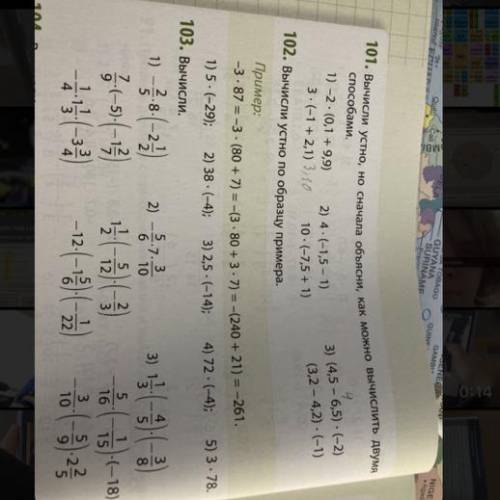 101. Вычисли устно, но сначала объясни, как можно вычислить двумя
способами.
1) –2 · (0,1 + 9,9)    2) 4 · (–1,5 – 1)    3) (4,5 – 6,5) · (–2)
3 · (–1 + 2,1)    10 · (–7,5 + 1)    (3,2 – 4,2) · (–1)
102. Вычисли устно по образцу примера.
Пример:
–3 · 87 = –3 · (80 + 7) = –(3 · 80 + 3 · 7) = –(240 + 21) = –261.
1) 5 · (–29);    2) 38 · (–4);    3) 2,5 · (–14);    4) 72 · (–4);    5) 3 · 78.
103. Вычисли.
1) –2/5 · 8 · (–2 1/2)    2) –5/6 · 7 · 3/10    3) 1 1/3 · (–4/5) · (–3/8)
7/9 · (–5) · (–1 2/7)    1 1/2 · (–5/12) · (–2/3)    –5/16 · (–1/15) · (–18)
–1/4 · 1 1/3 · (–3 3/4)    –12 · (–1 5/6) · (–1/22)    –3/10 · (–5/9) · 2 2/5
104.
GUYANA
SURINAME
0:14